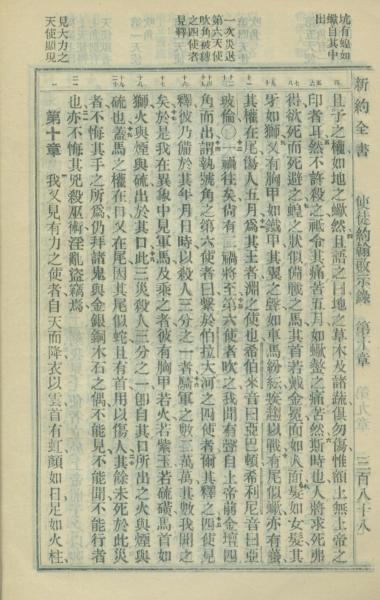 新約全書　使徒約翰啟示錄　第十章　第九章　三百八十八
坑有蝗如
蠍自其中
出
一次災退
第六天使
吹角被縛
之四使者
見釋
見大力之
天使顯現
且予之權如地之蠍然且語之曰地之草木及諸蔬俱勿傷惟額上無上帝之
印者耳然不許殺之祗令其痛苦五月如蠍螫之痛苦然斯時也人將求死弗
得欲死而死避之蝗之狀似備戰之馬其首若戴金冕而如人面髮如女髮其
牙如獅又有胸甲如鐵甲其翼之聲如車馬紛紜疾趨以戰有尾似蠍亦有螫
其權在尾傷人五月爲其王者淵之使也希伯來音曰亞巴頓希利尼音曰亞
玻倫○一禍往矣尚有二禍將至第六使者吹之我聞有聲自上帝前金壇四
角而出謂執號角之第六使者曰繫於伯拉大河之四使者爾其釋之四使見
釋彼乃備於其年月日時以殺人三分之一者騎軍之數二萬萬其數我聞之
矣於是我在異象中見軍馬及乘之者彼有胸甲若火若紫玉若硫磺馬首如
獅火與煙與硫出於其口此三災殺人三分之一卽自其口所出之火與煙與
硫也蓋馬之權在口又在尾因其尾似蛇且有首用以傷人其餘未死於此災
者不悔其手之所爲仍拜諸鬼與金銀銅木石之偶不能見不能聞不能行者
也亦不悔其兇殺巫術淫亂盜竊焉
第十章　我又見有力之使者自天而降衣以雲首有虹顏如日足如火柱